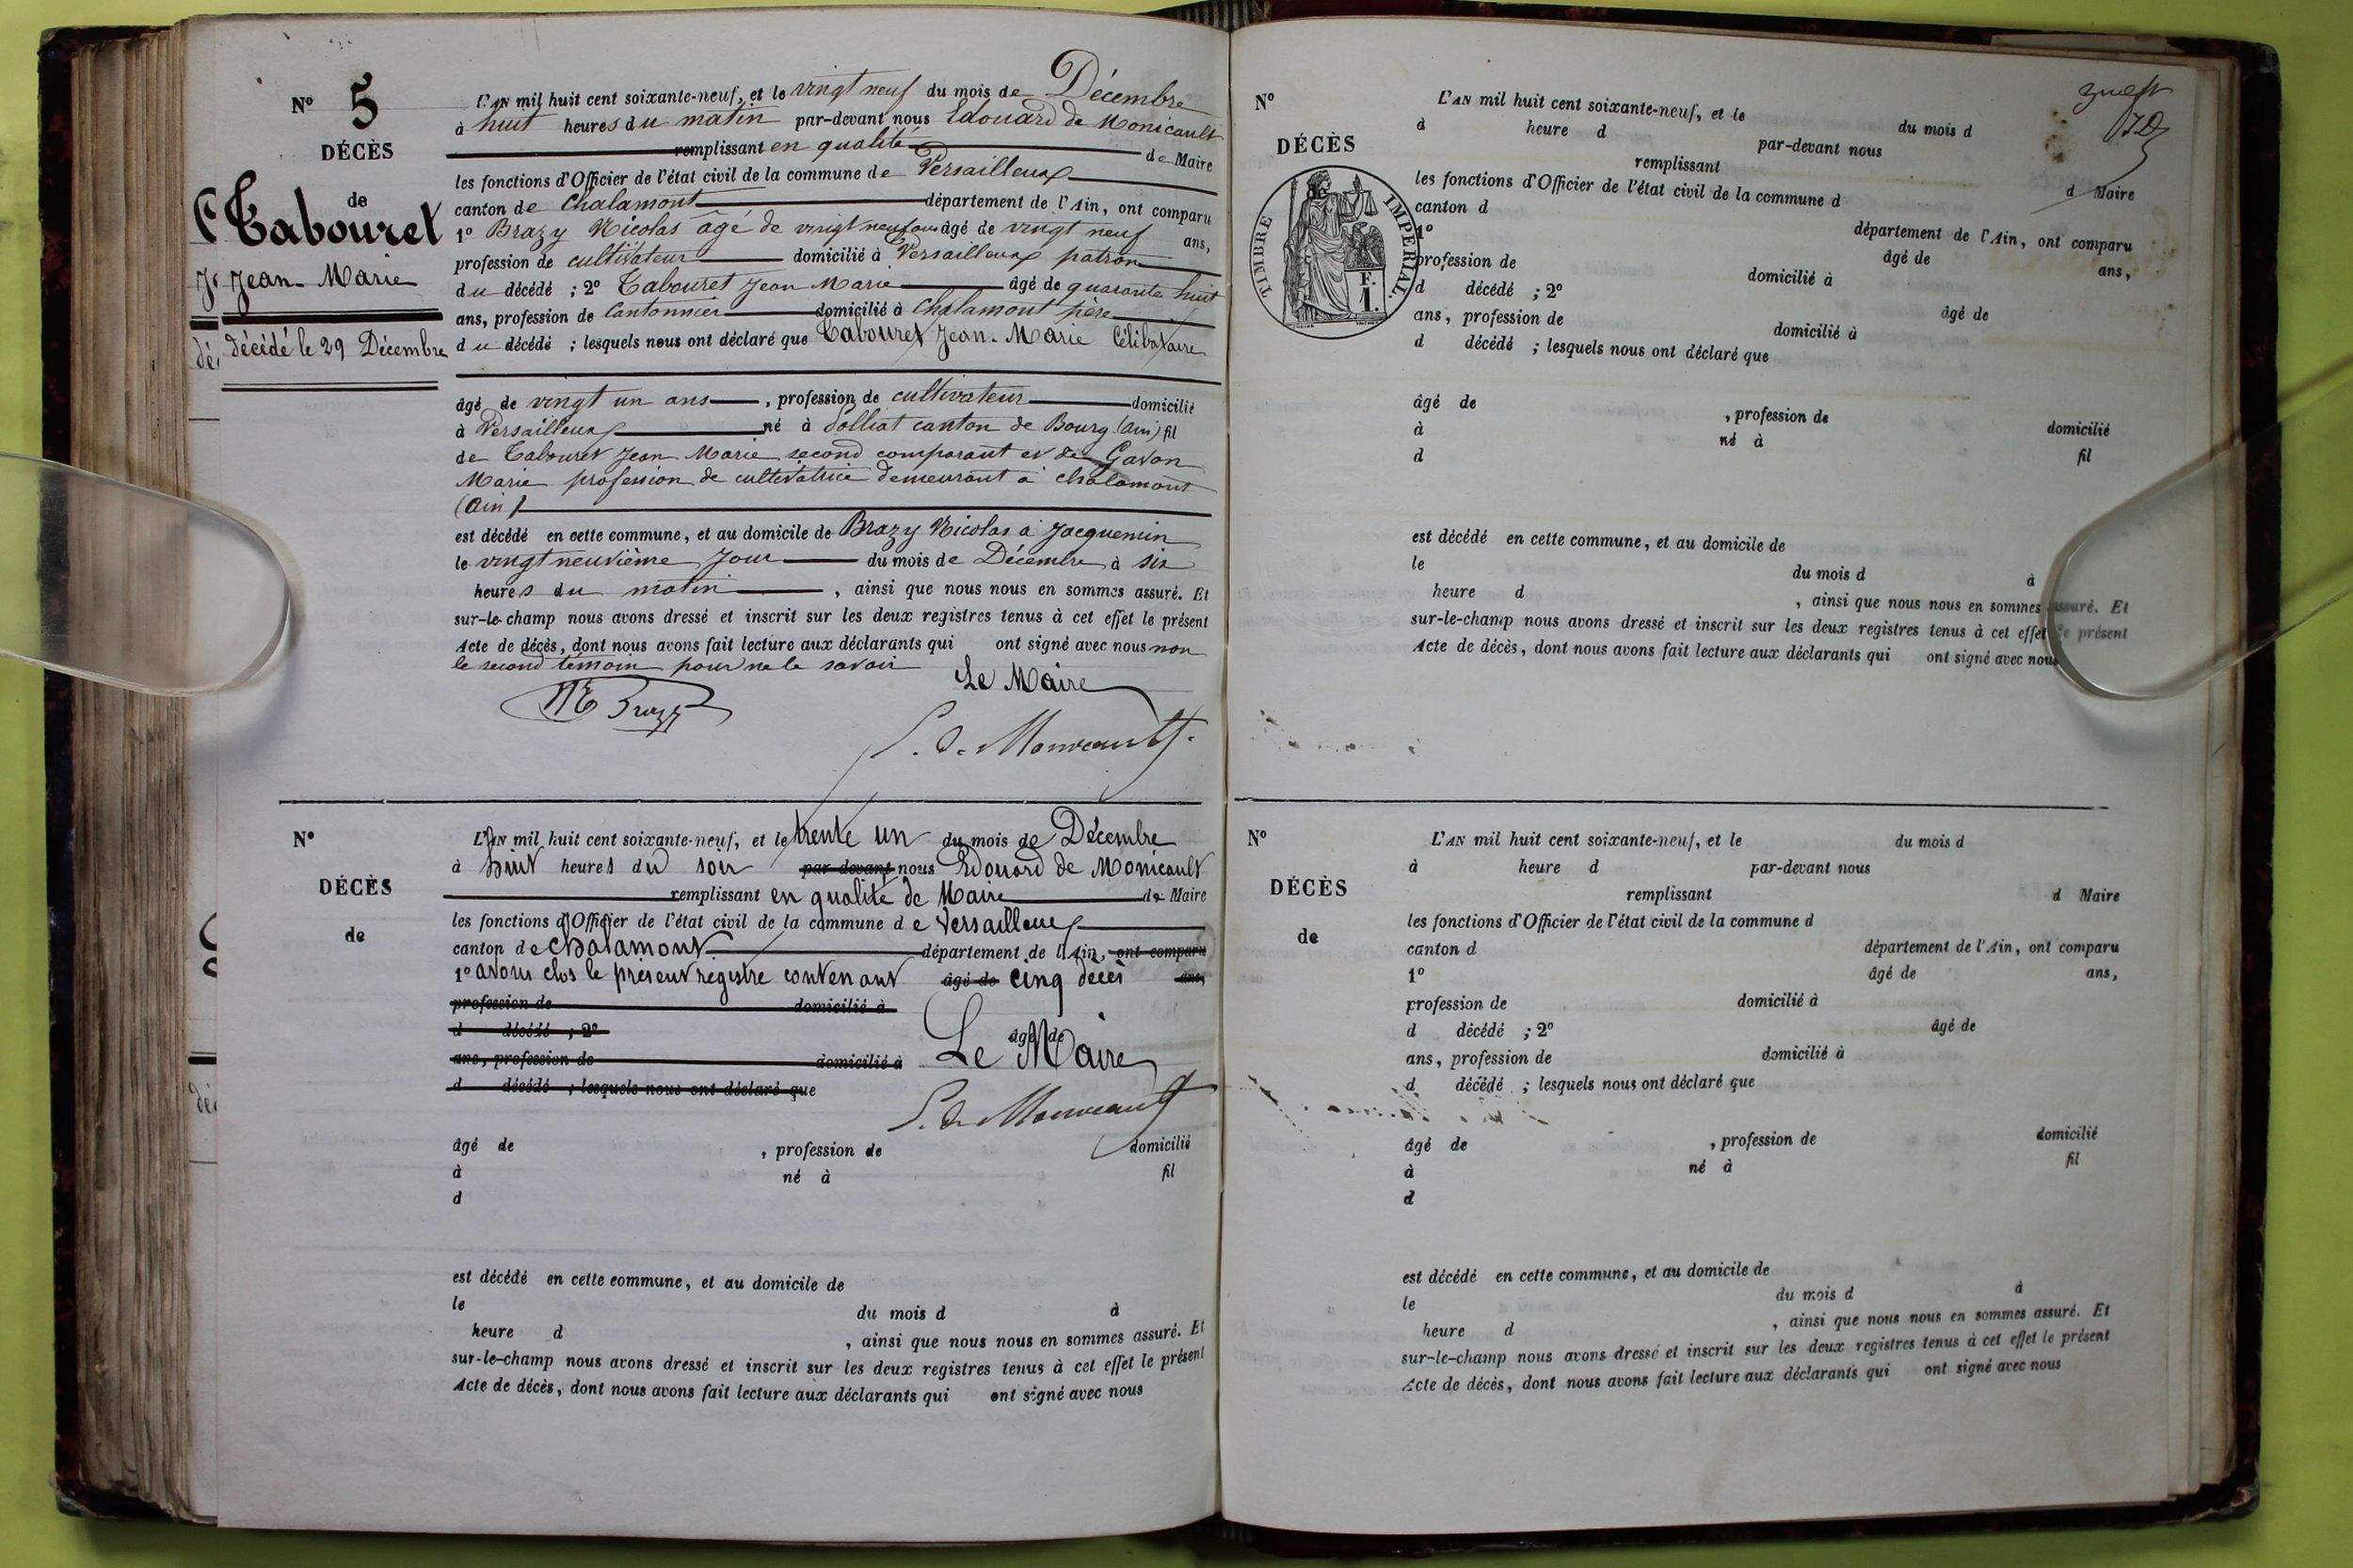 N° 5
DÉCÈS
de
Tabouret
Jean-Marie
décédé le 29 Décembre
L'AN mil huit cent soixante-neuf, et le vingt neuf du mois de Décembre
à huit heures du matin par-devant nous Edouard de Monicault
remplissant en qualité de Maire
les fonctions d'Officier de l'état civil de la commune de Versailleux
canton de Chalamont département de l'Ain, ont comparu
1° Brazy Nicolas âgé de vingt neuf ans âgé de vingt neuf ans,
profession de cultivateur domicilié à Versailleux patron
du décédé ; 2° Tabouret Jean Marie âgé de quarante huit
ans, profession de Cantonnier domicilié à Chalamont père
du décédé ; lesquels nous ont déclaré que Tabouret Jean-Marie Célibataire
âgé de vingt un ans, profession de cultivateur domicilié
à Versailleux né à Dolliat canton de Bourg (Ain) fil
de Tabouret Jean Marie second comparant et de Gavan
Marie profession de cultivatrice demeurant à Chalamont
(Ain)
est décédé en cette commune, et au domicile de Brazy Nicolas à Jacquemin
le vingt neuvième jour du mois de Décembre à six
heures du matin, ainsi que nous nous en sommes assuré. Et
sur-le-champ nous avons dressé et inscrit sur les deux registres tenus à cet effet le présent
Acte de décès, dont nous avons fait lecture aux déclarants qui ont signé avec nous non
le second témoin pour ne le savoir
Le Maire
N Brazy
E. de Monicault
N°
DÉCÈS
de
L'AN mil huit cent soixante-neuf, et le trente un du mois de Décembre
à huit heures du soir par-devant nous Edouard de Monicault
remplissant en qualité de Maire de Maire
les fonctions d'Officier de l'état civil de la commune de Versailleux
canton de Chalamont département de l'Ain, ont comparu
1° avons clos le présent registre contenant âgé de cinq décès ans,
profession de domicilié à
d décédé ; 2° âgé de
Le Maire
ans, profession de domicilié à
d décédé ; lesquels nous ont déclaré que
E. de Monicault
âgé de , profession de domicilié
à né à fil
d
est décédé en cette commune, et au domicile de
le du mois d à
heure d , ainsi que nous nous en sommes assuré. Et
sur-le-champ nous avons dressé et inscrit sur les deux registres tenus à cet effet le présent
Acte de décès, dont nous avons fait lecture aux déclarants qui ont signé avec nous
N°
DÉCÈS
de
TIMBRE IMPERIAL
F.
1.
L'AN mil huit cent soixante-neuf, et le du mois d
à heure d par-devant nous
remplissant d Maire
les fonctions d'Officier de l'état civil de la commune d
canton d département de l'Ain, ont comparu
1° âgé de ans,
profession de domicilié à
d décédé ; 2° âgé de
ans, profession de domicilié à
d décédé ; lesquels nous ont déclaré que
âgé de , profession de domicilié
à né à fil
d
est décédé en cette commune, et au domicile de
le du mois d à
heure d , ainsi que nous nous en sommes assuré. Et
sur-le-champ nous avons dressé et inscrit sur les deux registres tenus à cet effet le présent
Acte de décès, dont nous avons fait lecture aux déclarants qui ont signé avec nous
N°
DÉCÈS
de
L'AN mil huit cent soixante-neuf, et le du mois d
à heure d par-devant nous
remplissant d Maire
les fonctions d'Officier de l'état civil de la commune d
canton d département de l'Ain, ont comparu
1° âgé de ans,
profession de domicilié à
d décédé ; 2° âgé de
ans, profession de domicilié à
d décédé ; lesquels nous ont déclaré que
âgé de , profession de domicilié
à né à fil
d
est décédé en cette commune, et au domicile de
le du mois d à
heure d , ainsi que nous nous en sommes assuré. Et
sur-le-champ nous avons dressé et inscrit sur les deux registres tenus à cet effet le présent
Acte de décès, dont nous avons fait lecture aux déclarants qui ont signé avec nous